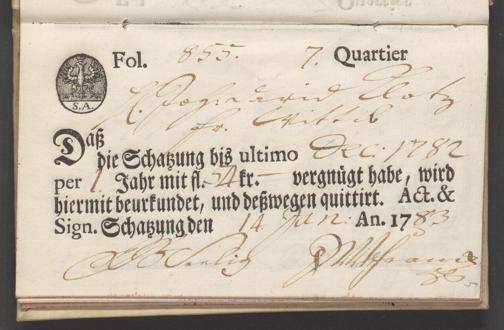 Fol. 855. 7. Quartier
S.A.
Wittib
Daß
die Schatzung biß ultimo Dec: 1782
per 1 Jahr mit fl. 24 kr. – vergnügt habe, wird
hiermit beurkundet, und deßwegen quittirt. Act. &
Sign. Schatzung den 14 Jan: An. 1783